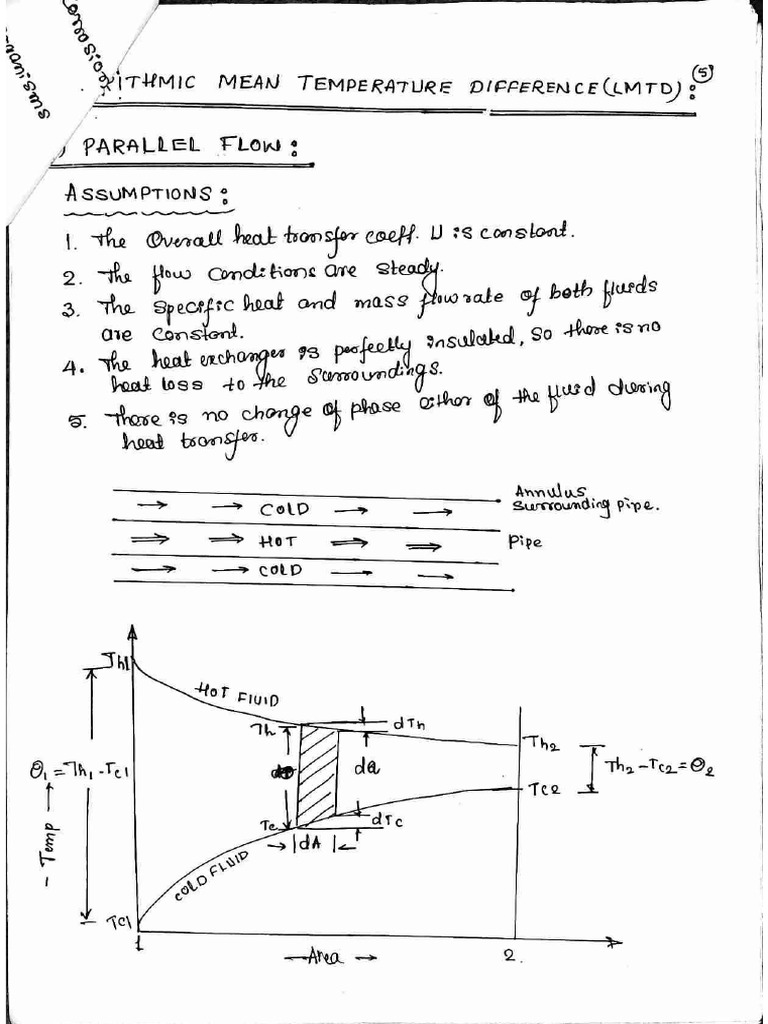 Corrosion
ITHMIC MEAN TEMPERATURE DIFFERENCE (LMTD):
5
) PARALLEL FLOW:
ASSUMPTIONS:
1. The Overall heat transfer coeff. U is constant.
2. The flow conditions are steady.
3. The specific heat and mass flow rate of both fluids
are constant.
4. The heat exchanger is perfectly insulated, so there is no
heat loss to the surroundings.
5. There is no change of phase either of the fluid during
heat transfer.
COLD
Annulus
surrounding pipe.
HOT
Pipe
COLD
Th1
HOT FLUID
dTh
Th
Th2
θ1 = Th1 - Tc1
dQ
Th2 - Tc2 = θ2
Tc2
Tc
dTc
dA
COLD FLUID
Temp
Tc1
1
Area
2.